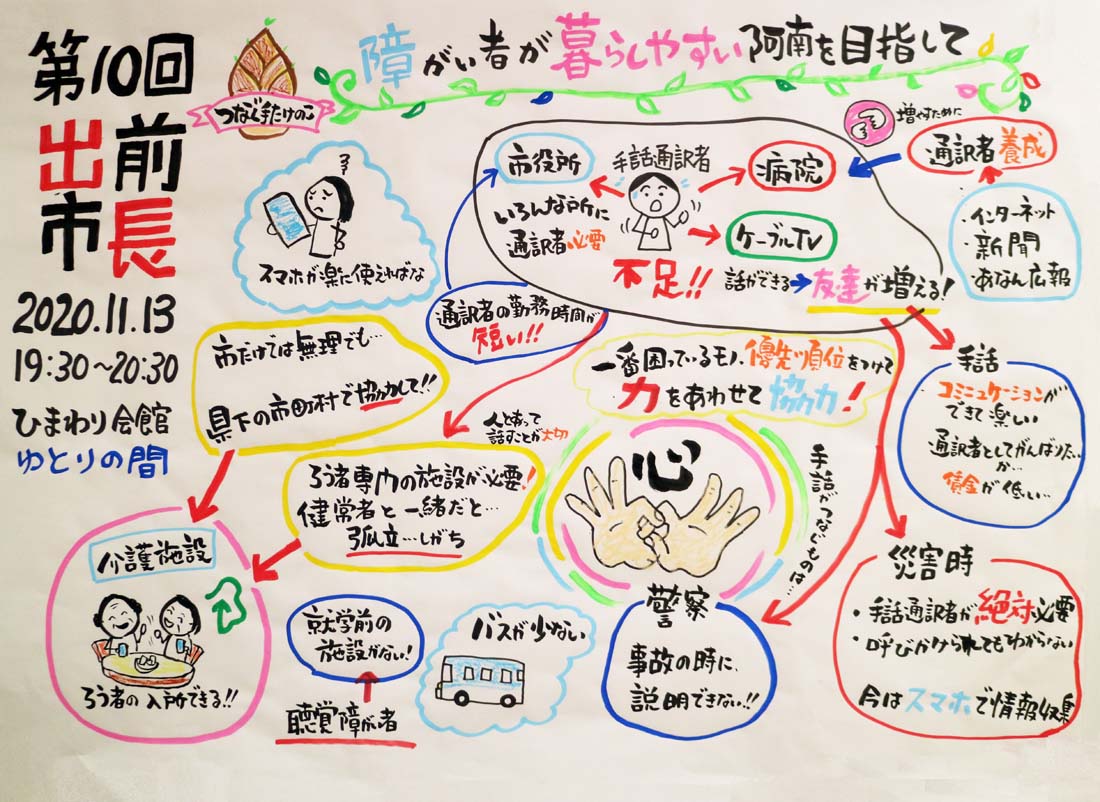 第10回
出前
市長
2020.11.13
19:30~20:30
ひまわり会館
ゆとりの間
つなぐ手たけのこ
障がい者が暮らしやすい阿南を目指して
スマホが楽に使えればな
市役所
手話通訳者
病院
いろんな所に
通訳者必要
ケーブルTV
不足!!
話ができる→友達が増える!
増やすために
通訳者養成
・インターネット
・新聞
・あなん広報
通訳者の勤務時間が
短い!!
市だけでは無理でも…
県下の市町村で協力して!!
一番困っているモノ、優先順位をつけて
力をあわせて協力!
手話
コミニュケーションが
できて楽しい
通訳者としてがんばりた…
が…
賃金が低い…
人と会って
話すことが大切
ろう者専門の施設が必要!
健常者と一緒だと…
孤立…しがち
心
手話がつなぐものは…
介護施設
ろう者の入所できる!!
就学前の
施設がない!
聴覚障がい者
バスが少ない
警察
事故の時に、
説明できない!!
災害時
・手話通訳者が絶対必要
・呼びかけられてもわからない
今はスマホで情報収集